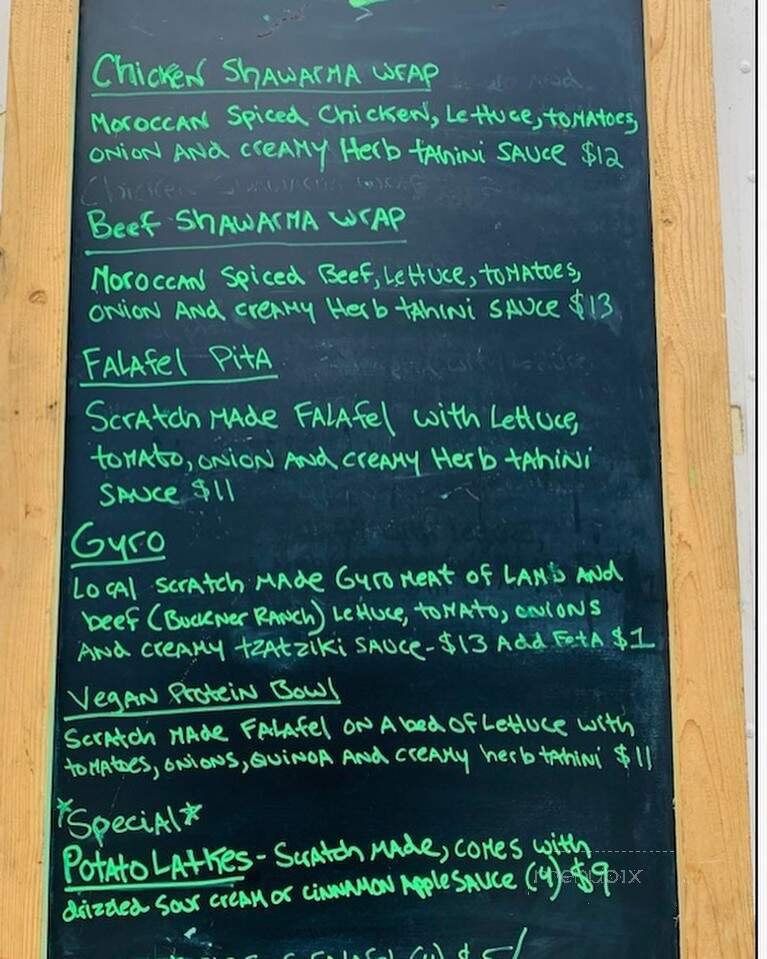 Chicken Shawarma Wrap
Moroccan Spiced Chicken, Lettuce, tomatoes,
onion and creamy Herb tahini sauce $12
Beef Shawarma Wrap
Moroccan Spiced Beef, Lettuce, tomatoes,
onion and creamy Herb tahini sauce $13
Falafel Pita
Scratch made Falafel with Lettuce,
tomato, onion and creamy Herb tahini
sauce $11
Gyro
Local scratch made Gyro meat of Lamb and
beef (Buckner Ranch) Lettuce, tomato, onions
and creamy tzatziki sauce - $13 Add Feta $1
Vegan Protein Bowl
Scratch made Falafel on a bed of Lettuce with
tomatoes, onions, quinoa and creamy herb tahini $11
*Special*
Potato Latkes - Scratch made, comes with
drizzled sour cream or cinnamon applesauce (4) $9
menupix
Falafel (4) $5